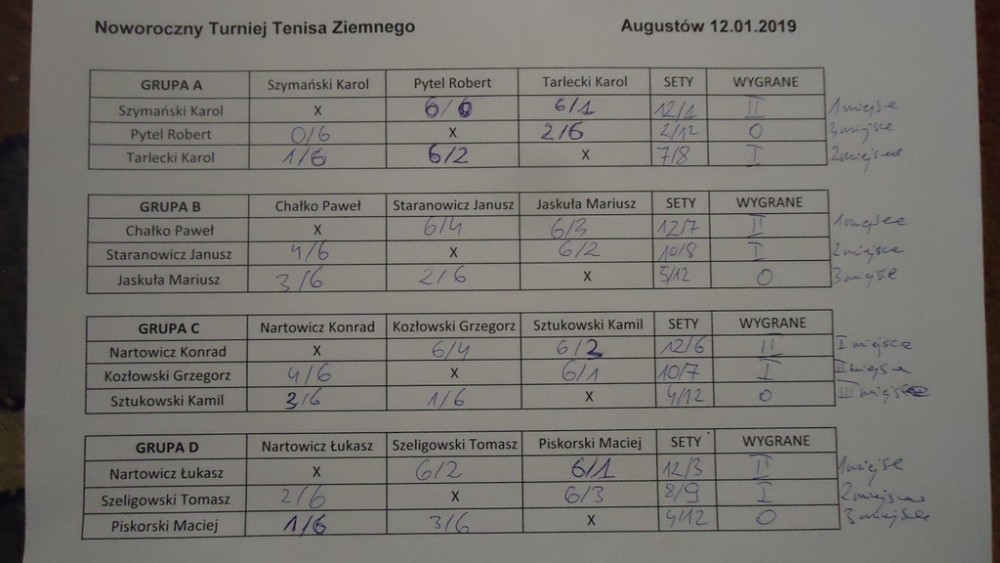 Noworoczny Turniej Tenisa Ziemnego Augustów 12.01.2019
GRUPA A Szymański Karol Pytel Robert Tarlecki Karol SETY WYGRANE
Szymański Karol X 6/0 6/1 12/1 II 1 miejsce
Pytel Robert 0/6 X 2/6 2/12 0 3 miejsce
Tarlecki Karol 1/6 6/2 X 7/8 I 2 miejsce
GRUPA B Chałko Paweł Staranowicz Janusz Jaskuła Mariusz SETY WYGRANE
Chałko Paweł X 6/4 6/3 12/7 II 1 miejsce
Staranowicz Janusz 4/6 X 6/2 10/8 I 2 miejsce
Jaskuła Mariusz 3/6 2/6 X 5/12 0 3 miejsce
GRUPA C Nartowicz Konrad Kozłowski Grzegorz Sztukowski Kamil SETY WYGRANE
Nartowicz Konrad X 6/4 6/ 12/6 II I miejsce
Kozłowski Grzegorz 4/6 X 6/1 10/7 I II miejsce
Sztukowski Kamil /6 1/6 X 4/12 0 III miejsce
GRUPA D Nartowicz Łukasz Szeligowski Tomasz Piskorski Maciej SETY WYGRANE
Nartowicz Łukasz X 6/2 6/1 12/3 II 1 miejsce
Szeligowski Tomasz 2/6 X 6/3 8/9 I 2 miejsce
Piskorski Maciej 1/6 3/6 X 4/12 0 3 miejsce